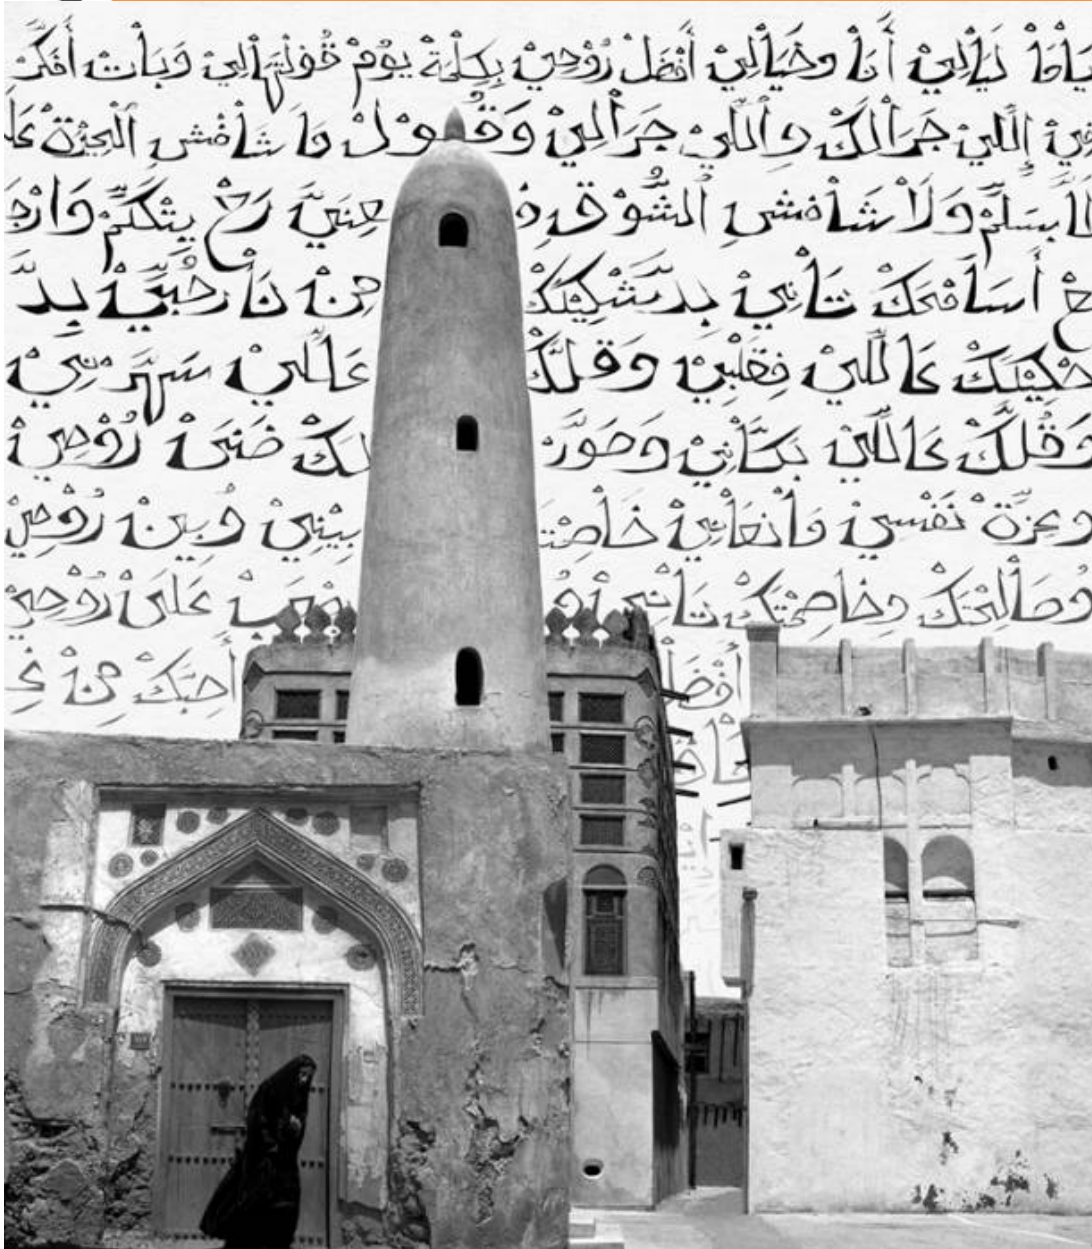 يَامَا لَيَالِيْ أَنَا وخَيَالِيْ أَفْضَلْ رُوْحِيْ بِكِلْمَةْ يوْمْ قُوْلْتِهَالِيْ وَبَاتْ أَفَكَّرْ
إِللِّيْ جَرَالَكْ وِاللِّيْ جَرَالِيْ وَقُوْلْ مَا شَافْشِ الْحِيْرَةْ
بسَلِّمْ وَلَا شَافْشِ الشُّوْق عِنَيَّ رَحْ يتْكَلِّمْ
أَسَامْحَكْ تَانِيْ بِدِّشْكِيْلَكْ مِنْ نَارْ حُبِّيْ بِدَّ
حْكِيْلَكْ عَاللِّيْ فِقَلْبِيْ وَقُلَّكْ عَاللِّيْ سَهَّرْنِيْ
وَقُلَّكْ عَاللِّيْ بَكَّانِيْ وصَوَّرْ لَكْ ضَنَى رُوْحِيْ
وعِزَّةْ نَفْسِيْ مَانْعَانِيْ بِيْنِيْ وُبِينْ رُوْحِيْ
وُصَالِحْتَكْ وِخَاصِمْتِكْ تَانِيْ عَلَى رُوْحِيْ
أَحِبَّكْ مِنْ